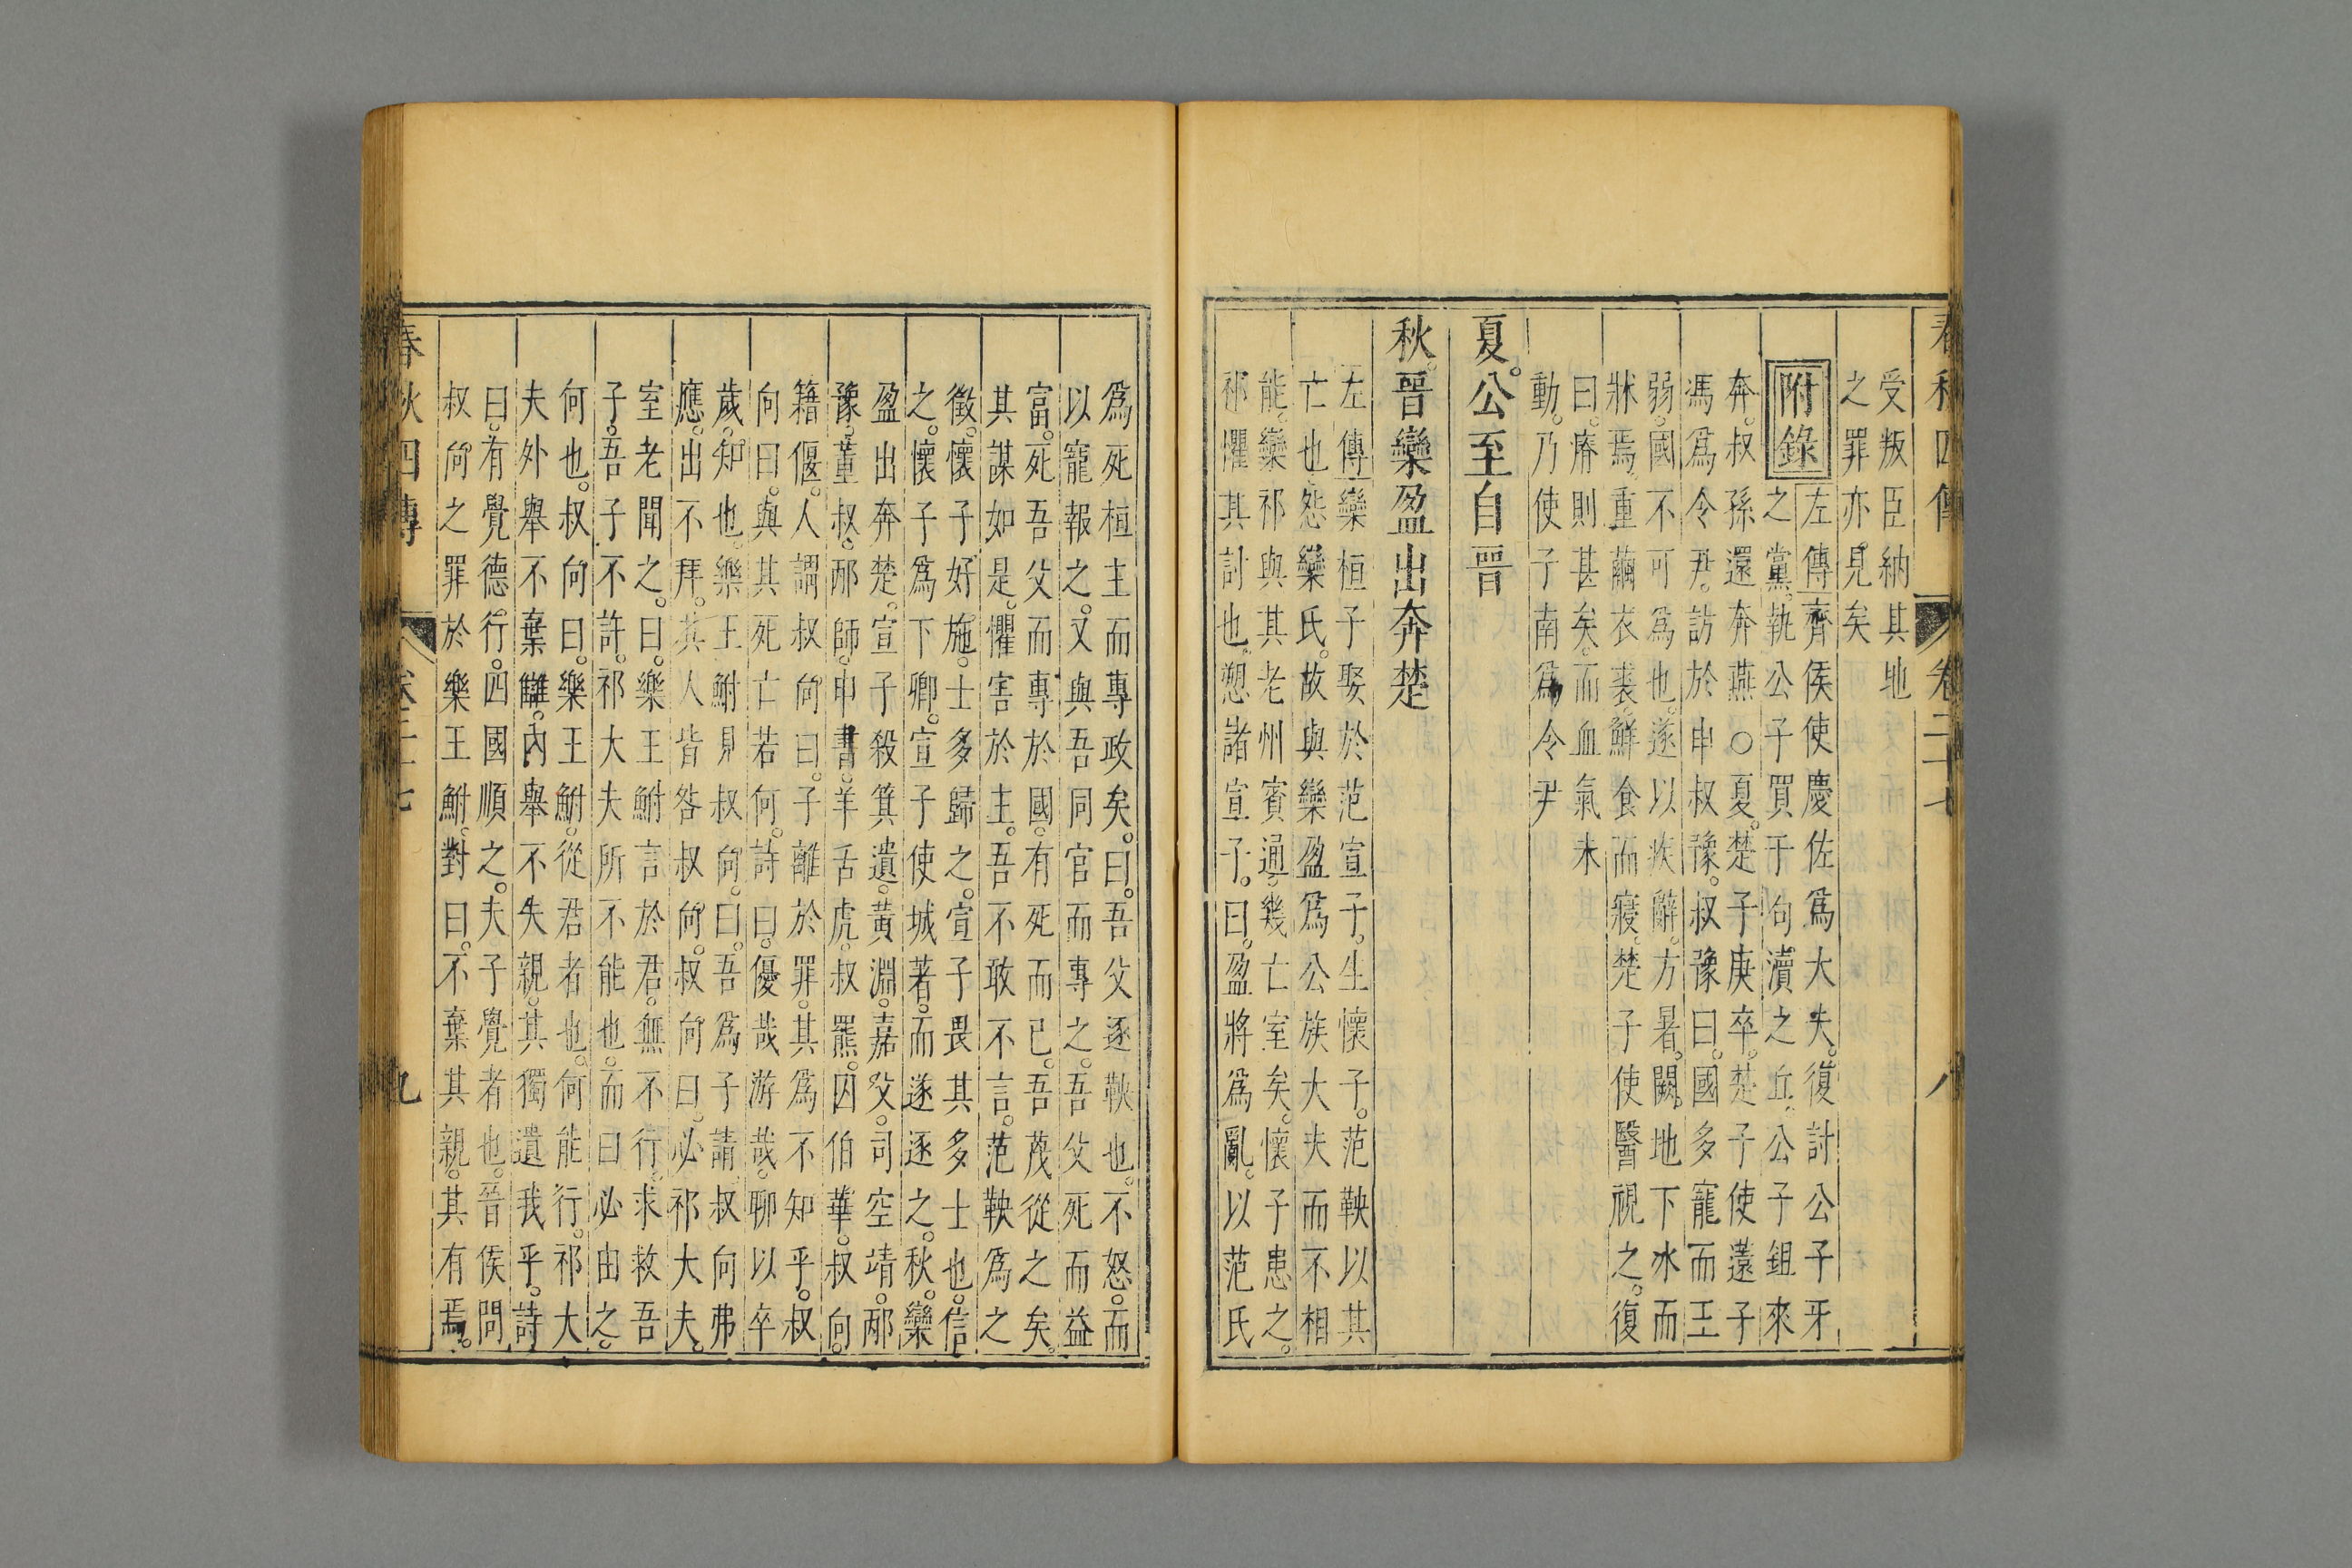 春秋四傳 卷二十七 八
受叛臣納其地
之罪亦見矣
附錄
左傳齊侯使慶佐爲大夫。復討公子牙
之黨。執公子買于句瀆之丘。公子鉏來
奔。叔孫還奔燕○夏。楚子庚卒。楚子使薳子
馮爲令尹。訪於申叔豫。叔豫曰。國多寵而王
弱。國不可爲也。遂以疾辭。方暑。闕地下冰而
牀焉。重繭衣裘。鮮食而寢。楚子使醫視之。復
曰。瘠則甚矣。而血氣未
動。乃使子南爲令尹
夏。公至自晉
秋。晉欒盈出奔楚
左傳欒桓子娶於范宣子。生懷子。范鞅以其
亡也。怨欒氏。故與欒盈爲公族大夫而不相
能。欒祁與其老州賓通。幾亡室矣。懷子患之。
祁懼其討也。愬諸宣子。曰。盈將爲亂。以范氏
爲死桓主而專政矣。曰。吾父逐鞅也。不怒。而
以寵報之。又與吾同官而專之。吾父死而益
富。死吾父而專於國。有死而已。吾蔑從之矣。
其謀如是。懼害於主。吾不敢不言。范鞅爲之
徵。懷子好施。士多歸之。宣子畏其多士也。信
之。懷子爲下卿。宣子使城著。而遂逐之。秋。欒
盈出奔楚。宣子殺箕遺。黃淵。嘉父。司空靖。邴
豫。董叔。邴師。申書。羊舌虎。叔羆。囚伯華。叔向。
籍偃。人謂叔向曰。子離於罪。其爲不知乎。叔
向曰。與其死亡若何。詩曰。優哉游哉。聊以卒
歲。知也。樂王鮒見叔向。曰。吾爲子請。叔向弗
應。出不拜。其人皆咎叔向。叔向曰。必祁大夫。
室老聞之。曰。樂王鮒言於君。無不行。求救吾
子。吾子不許。祁大夫所不能也。而曰必由之。
何也。叔向曰。樂王鮒。從君者也。何能行。祁大
夫外舉不棄讎。內舉不失親。其獨遺我乎。詩
曰。有覺德行。四國順之。夫子覺者也。晉侯問
叔向之罪於樂王鮒。對曰。不棄其親。其有焉。
春秋四傳 卷二十七 九